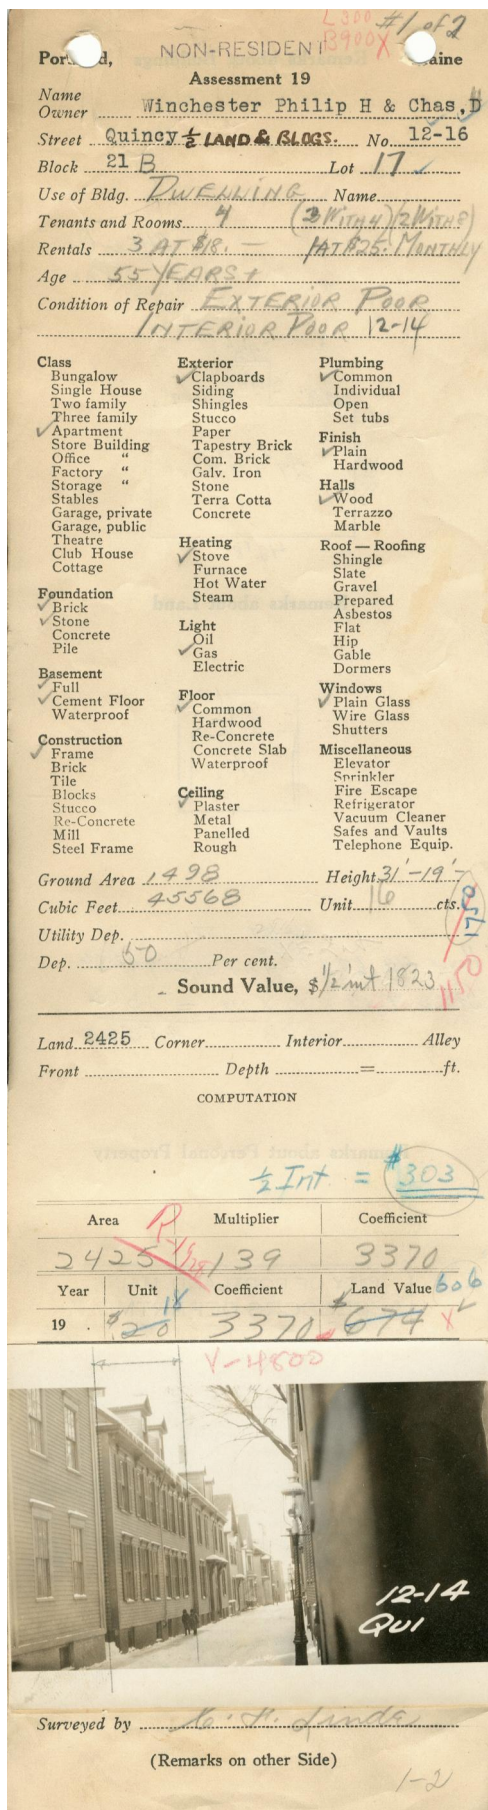 L 300 #1 of 2
Portland, NON-RESIDENT B900X Maine
Assessment 19
Name
Owner Winchester Philip H & Chas. D
Street Quincy ½ LAND & BLDGS. No. 12-16
Block 21 B Lot 17
Use of Bldg. DWELLING Name
Tenants and Rooms 4 (2 WITH 4)(2 WITH 8)
Rentals 3 AT $18.— 1 AT $25. MONTHLY
Age 55 YEARS +
Condition of Repair EXTERIOR POOR
INTERIOR POOR 12-14
Class
Bungalow
Single House
Two family
Three family
✓ Apartment
Store Building
Office "
Factory "
Storage "
Stables
Garage, private
Garage, public
Theatre
Club House
Cottage
Foundation
✓ Brick
✓ Stone
Concrete
Pile
Basement
✓ Full
✓ Cement Floor
Waterproof
Construction
✓ Frame
Brick
Tile
Blocks
Stucco
Re-Concrete
Mill
Steel Frame
Exterior
✓ Clapboards
Siding
Shingles
Stucco
Paper
Tapestry Brick
Com. Brick
Galv. Iron
Stone
Terra Cotta
Concrete
Heating
✓ Stove
Furnace
Hot Water
Steam
Light
Oil
✓ Gas
Electric
Floor
✓ Common
Hardwood
Re-Concrete
Concrete Slab
Waterproof
Ceiling
✓ Plaster
Metal
Panelled
Rough
Plumbing
✓ Common
Individual
Open
Set tubs
Finish
✓ Plain
Hardwood
Halls
✓ Wood
Terrazzo
Marble
Roof — Roofing
Shingle
Slate
Gravel
Prepared
Asbestos
Flat
Hip
Gable
Dormers
Windows
✓ Plain Glass
Wire Glass
Shutters
Miscellaneous
Elevator
Sprinkler
Fire Escape
Refrigerator
Vacuum Cleaner
Safes and Vaults
Telephone Equip.
Ground Area 1498 Height 31'-19'-
Cubic Feet 45568 Unit 16 cts.
Utility Dep.
Dep. 50 Per cent.
Sound Value, $ ½ int 1823
Land 2425 Corner Interior Alley
Front Depth = ft.
COMPUTATION
½ Int = $303
Area Multiplier Coefficient
2425 139 3370
Year Unit Coefficient Land Value 606
18
19 . $20 3370 $674 X
V-4800
12-14
QUI
Surveyed by
(Remarks on other Side)
1-2